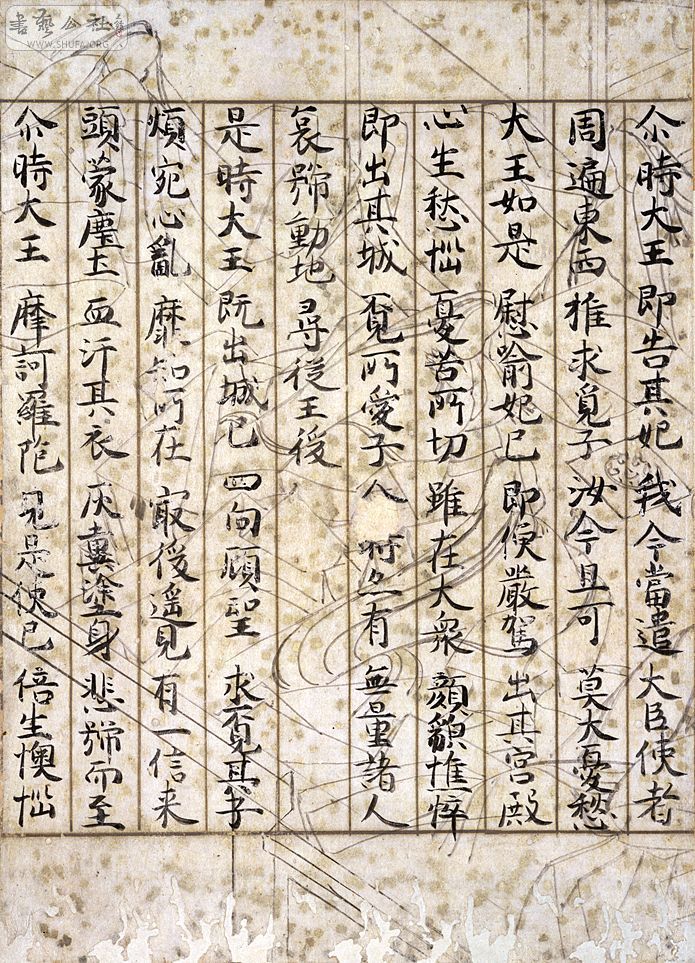 書藝公社
WWW.SHUFA.ORG
尒時大王 即告其妃 我今當遣 大臣使者
周遍東西 推求覓子 汝今且可 莫大憂愁
大王如是 慰喻妃已 即便嚴駕 出其宮殿
心生愁惱 憂苦所切 雖在大衆 顔貌憔悴
即出其城 覔所愛子 時亦有 無量諸人
哀號動地 尋從王後
是時大王 既出城已 四向顧望 求覔其子
煩宛心亂 靡知所在 㝡後遥見 有一信来
頭蒙塵土 血汗其衣 灰糞塗身 悲號而至
尒時大王 摩訶羅陀 見是使已 倍生懊惱